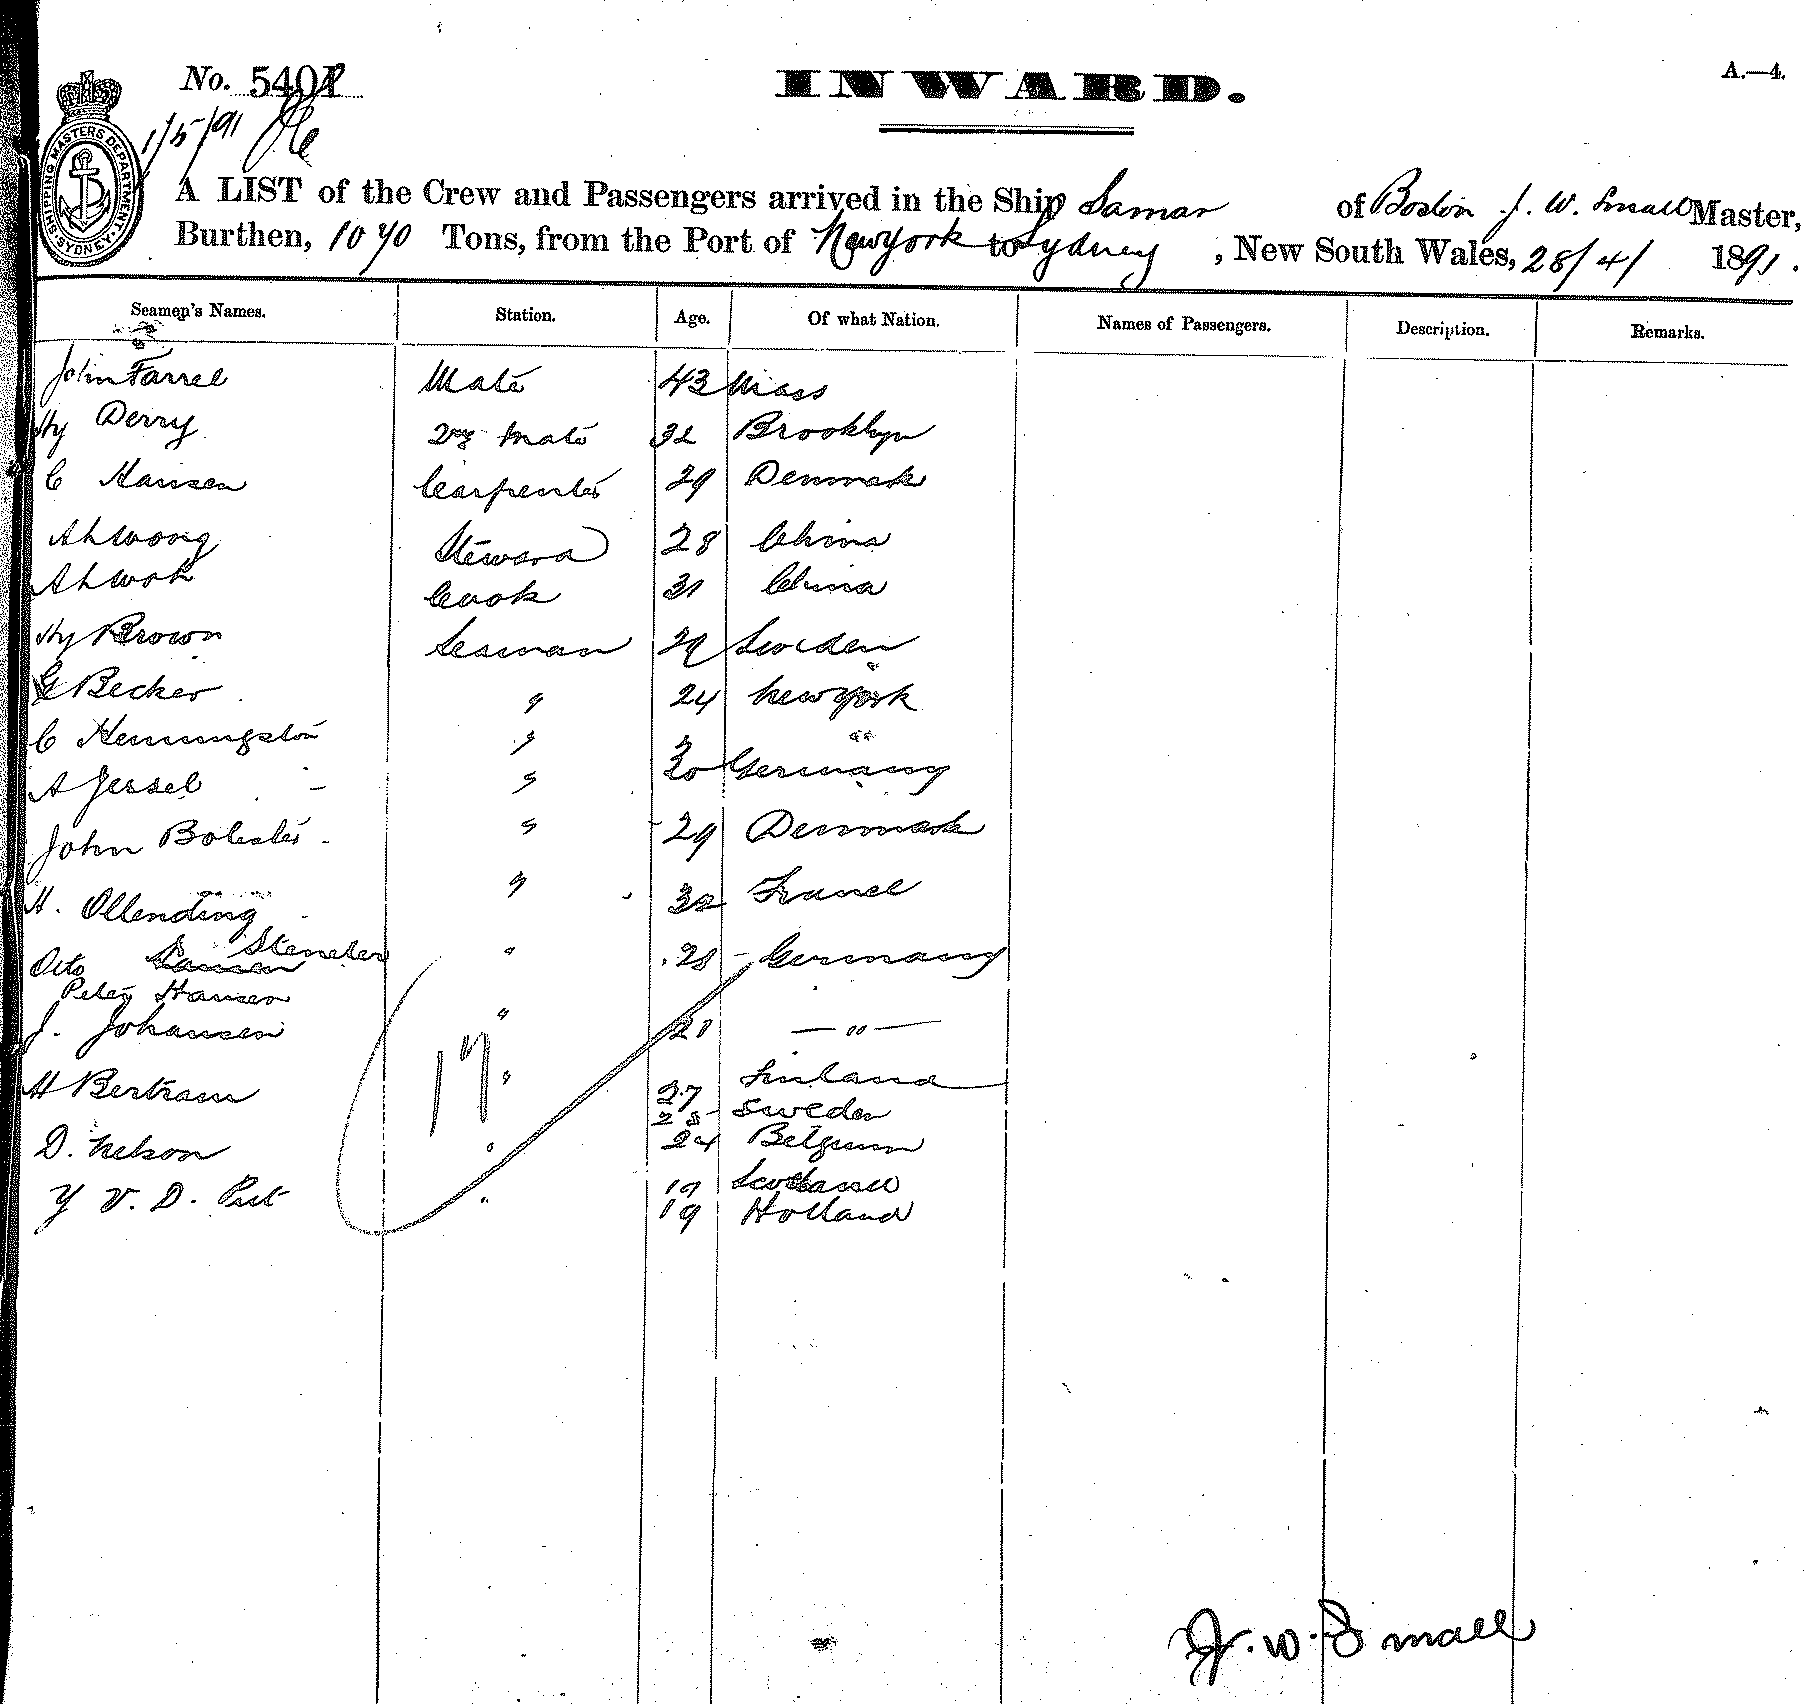 No. 5401
A.—4.
INWARD.
1/5/91
SHIPPING MASTERS DEPARTMENT SYDNEY
A LIST of the Crew and Passengers arrived in the Ship Samar of Boston J. W. Small Master,
Burthen, 1070 Tons, from the Port of New york to Sydney, New South Wales, 28/4/ 1891.
Seamen's Names. Station. Age. Of what Nation. Names of Passengers. Description. Remarks.
John Farrel Mate 43 Mass
Hy Derry 2nd Mate 32 Brooklyn
C Hansen Carpenter 29 Denmark
Ah Wong Steward 28 China
Ah Wok Cook 31 China
Hy Brown Seaman 29 Sweden
G Becker " 24 New York
C Hennington "
A Jessel " 30 Germany
John Bolester " 29 Denmark
H. Ollending " 32 France
Otto Hansen Steneler " 28 Germany
Peter Hansen
J. Johansen " 21 — " —
H Bertram " 27 Finland
25 Sweden
D. Nelson " 24 Belgium
19 Scotland
Y V. D. Put " 19 Holland
17
J. W. Small